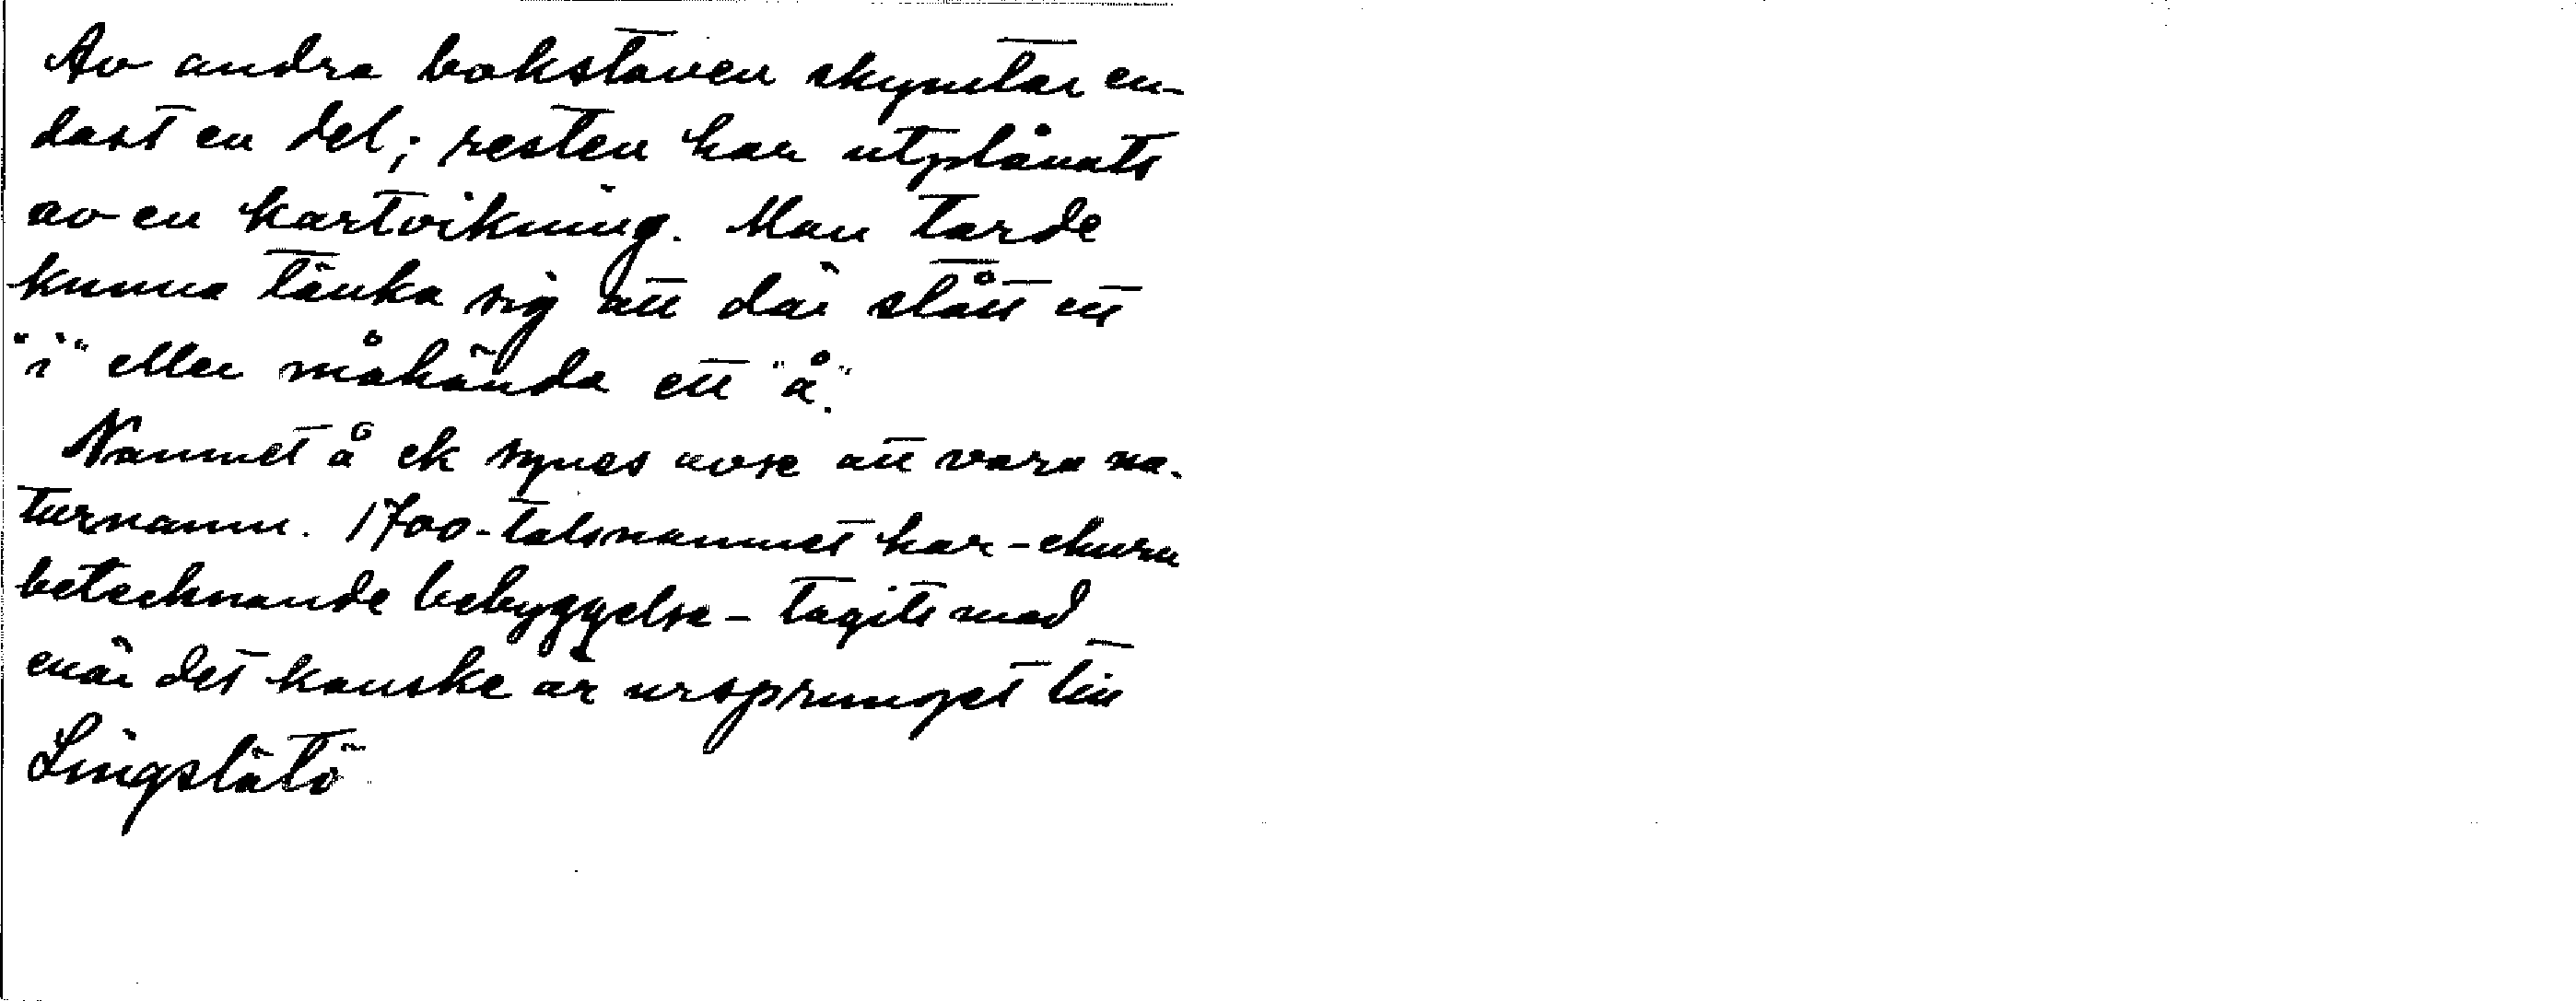 Av andra bokstaven skymtar en-
dast en del; resten har utplånats
av en kartvikning. Man torde
kunna tänka sig att där stått ett
"i" eller måhända ett "å".
Namnet å ek synes avse att vara na-
turnamn. 1700-talsnamnet har - ehuru
betecknande bebyggelse - tagits med
enär det kanske är ursprunget till
Lingslätö